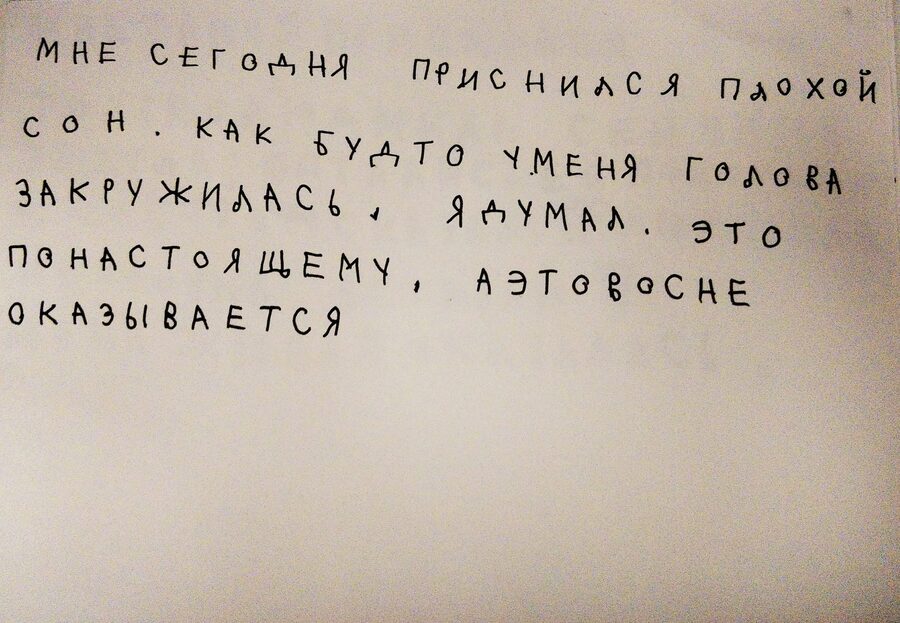 МНЕ СЕГОДНЯ ПРИСНИЛСЯ ПЛОХОЙ
СОН. КАК БУДТО У.МЕНЯ ГОЛОВА
ЗАКРУЖИЛАСЬ, Я ДУМАЛ. ЭТО
ПОНАСТОЯЩЕМУ, АЭТОВОСНЕ
ОКАЗЫВАЕТСЯ